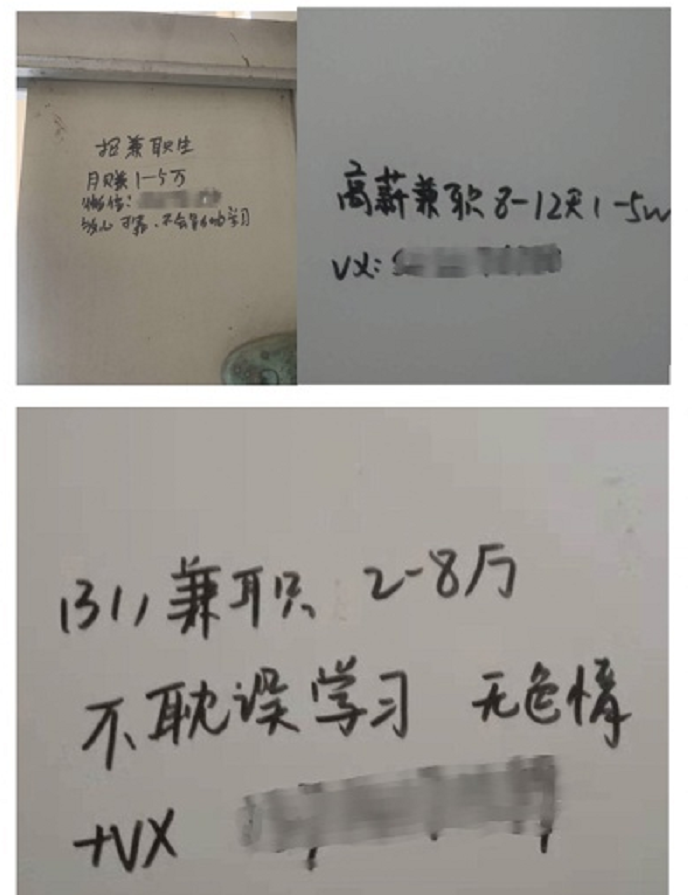 招兼职生
月赚1-5万
微信:
放心可靠、不会影响学习
高薪兼职8-12天1-5w
VX:
兼职 2-8万
不耽误学习 无色情
+VX